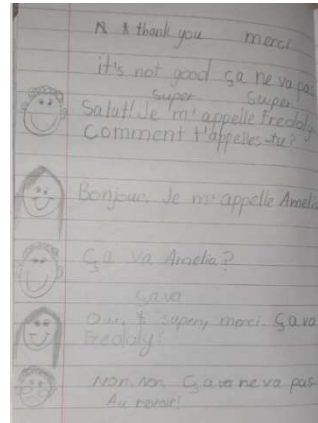 * thank you merci
it's not good ça ne va pas
super super
Salut! Je m'appelle Freddly
Comment t'appelles-tu?
Bonjour. Je m'appelle Amelia
Ça va Amelia?
Ça va
Oui, * super, merci. Ça va
Freddly?
Non, non. Ça va ne va pas.
Au revoir!